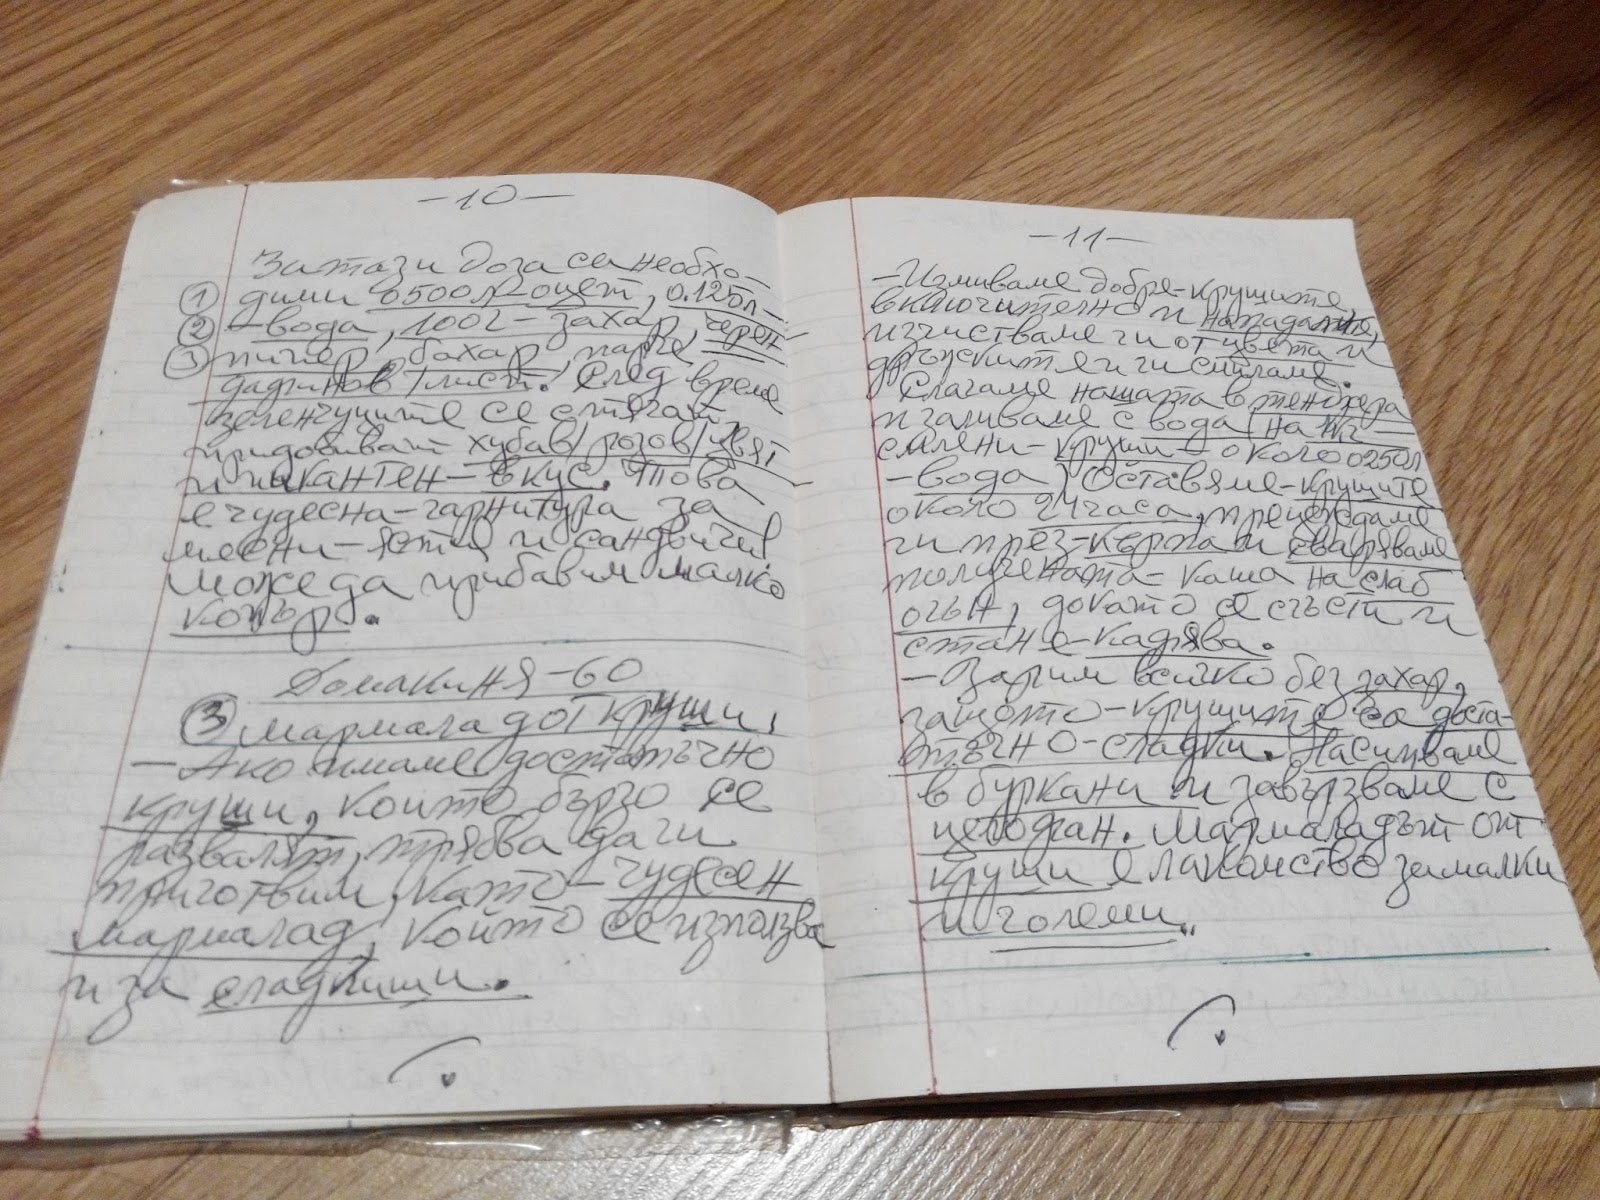 -10-
За тази доза са необхо-
① дими 0500л-оцет, 0.125л-
② -вода, 100г-захар, черен
③ пипер, бахар, парче
дафинов 1 лист. След време
зеленчуците се стягат
придобиват хубав/розов/цвят
и пикантен-вкус. Това
е чудесна-гарнитура за
месни-ястия и сандвичи!
Може да прибавим малко
копър.
Домакиня-60
③ Мармалад от круши,
-Ако имаме достатъчно
круши, които бързо се
развалят, трябва да ги
приготвим като-чудесен
мармалад, който се използва
и за сладкиши.
-11-
-Измиваме добре-крушите,
включително и нападалите,
изчистваме ги от цвета и
дръжките и ги смиламе.
Слагаме кашата в тенджера
и заливаме с вода (на 1кг
смлени-круши-около 0250л
-вода) Оставяме-крушите
около 24 часа, прецеждаме
ги през-кърпа и сваряваме
получената-каша на слаб
огън, докато се сгъсти и
стане-кафява.
-Варим всичко без захар,
защото-крушите са доста-
тъчно-сладки. Насипваме
в буркани и завързваме с
целофан. Мармаладът от
круши е лакомство за малки
и големи..